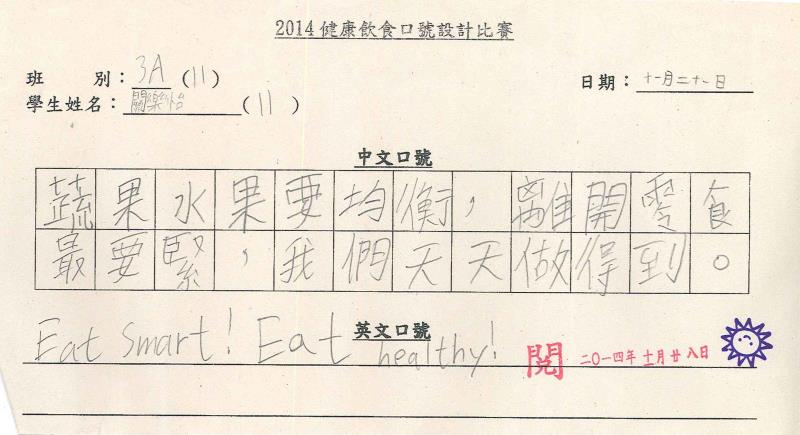 2014 健康飲食口號設計比賽
班 別：3A (11)
日期：十一月二十一日
學生姓名：關樂怡 (11)
中文口號
蔬果水果要均衡，離開零食
最要緊，我們天天做得到。
英文口號
Eat smart! Eat healthy!
閱 二〇一四年十一月廿八日